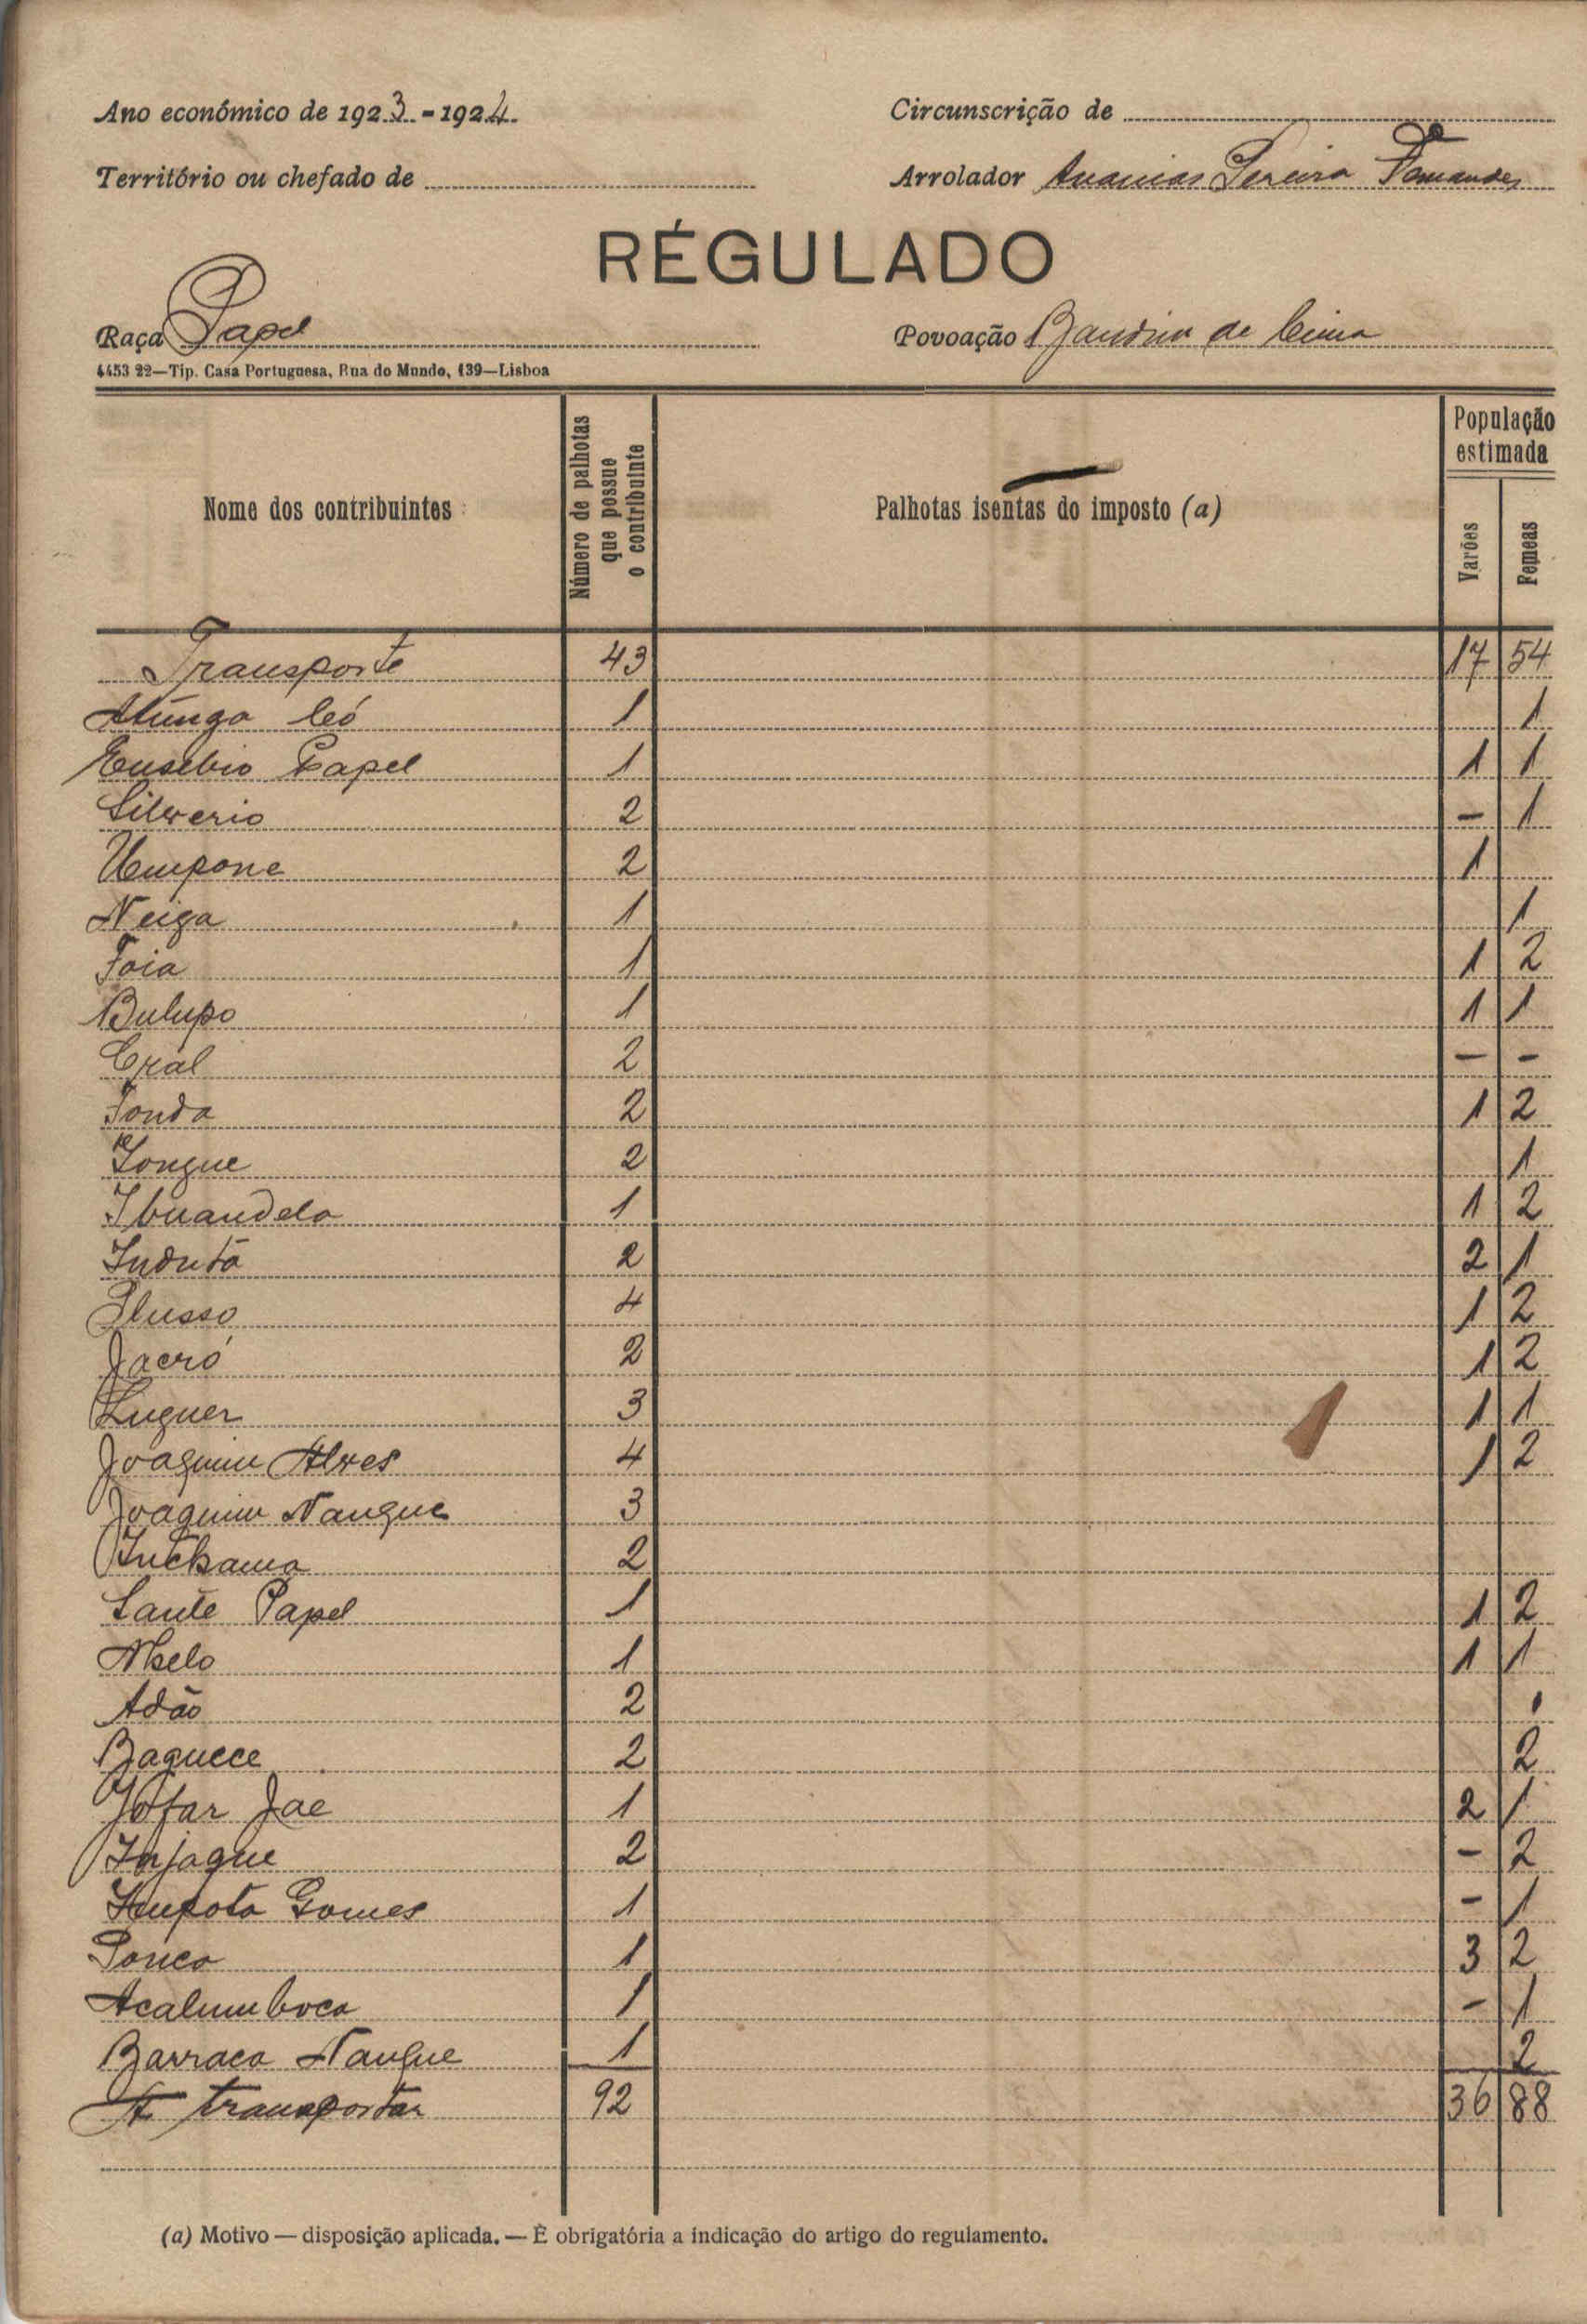 Ano económico de 1923-1924
Circunscrição de
Território ou chefado de
Arrolador Ananias Pereira Fernandes
RÉGULADO
Raça Papel
Povoação Bandim de Cima
4453 22—Tip. Casa Portuguesa, Rua do Mundo, 139—Lisboa
Nome dos contribuintes
Número de palhotas que possue o contribuinte
Palhotas isentas do imposto (a)
População estimada
Varões
Femeas
Transporte 43 17 54
Atúnga Có 1 1
Eusebio Papel 1 1 1
Silverio 2 - 1
Umpone 2 1
Neiga 1 1
Foia 1 1 2
Bulupo 1 1 1
Cral 2 - -
Fonda 2 1 2
Iongue 2 1
Ibuandelo 1 1 2
Indutá 2 2 1
Plusso 4 1 2
Jacró 2 1 2
Luguer 3 1 1
Joaquim Alves 4 1 2
Joaquim Nangue 3
Intchama 2
Santé Papel 1 1 2
Melo 1 1 1
Adão 2
Baguece 2 2
Jofar Jae 1 2 1
Injaque 2 - 2
Gomes 1 - 1
Ponco 1 3 2
Acalumboca 1 - 1
Barraca Nangue 1 2
A transportar 92 36 88
(a) Motivo — disposição aplicada. — È obrigatória a indicação do artigo do regulamento.